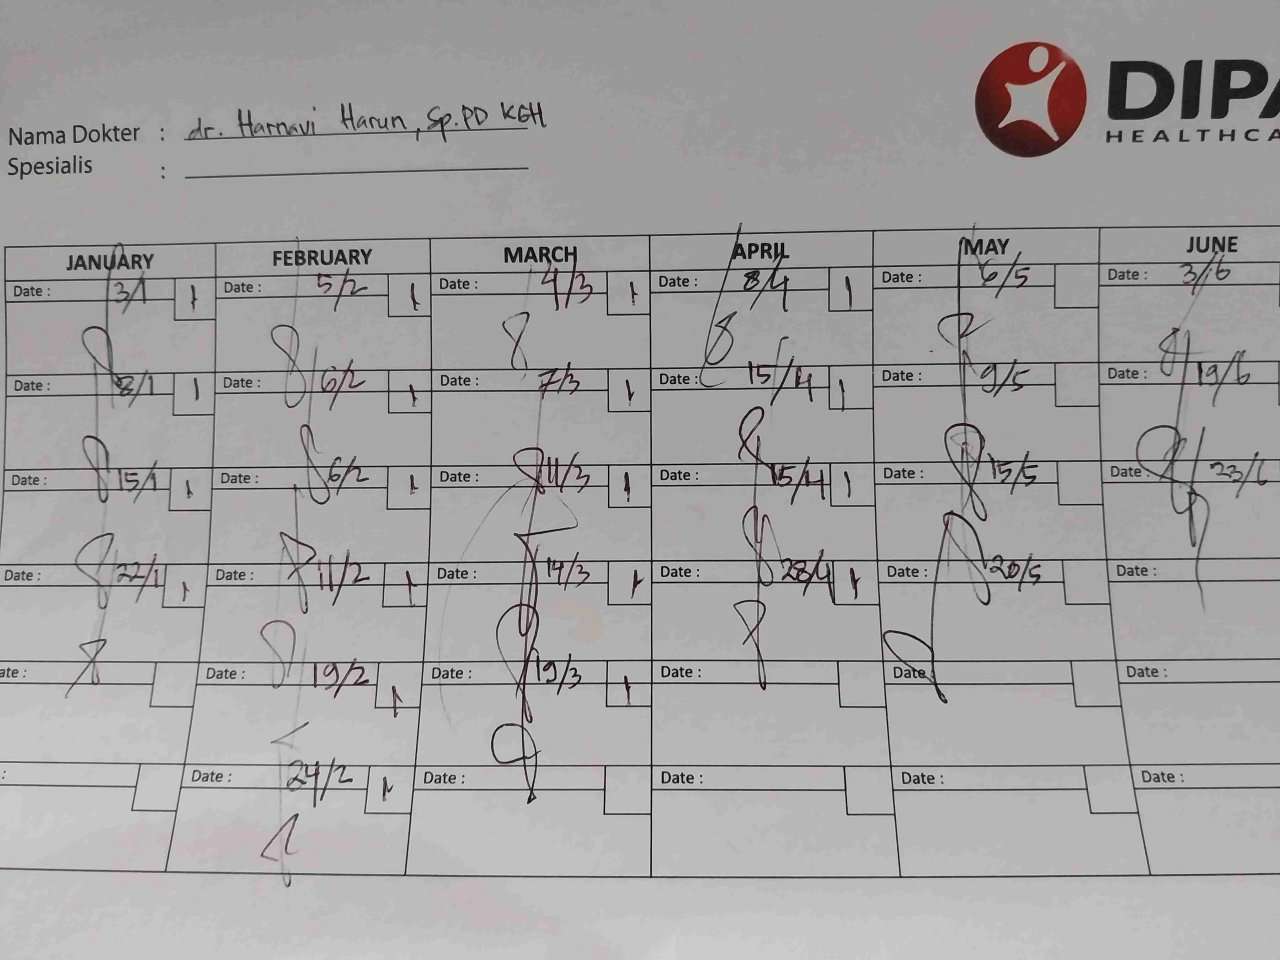 DIPA
HEALTHCA
Nama Dokter : dr. Harnavi Harun, Sp.PD KGH
Spesialis :
JANUARY FEBRUARY MARCH APRIL MAY JUNE
Date : 3/1 1 Date : 5/2 1 Date : 4/3 1 Date : 8/4 1 Date : 6/5 Date : 3/6
Date : 8/1 1 Date : 6/2 1 Date : 7/3 1 Date : 15/4 1 Date : 9/5 Date : 19/6
Date : 15/1 1 Date : 6/2 1 Date : 11/3 1 Date : 15/4 1 Date : 15/5 Date : 23/6
Date : 22/1 1 Date : 11/2 1 Date : 14/3 1 Date : 28/4 1 Date : 20/5 Date :
ate : Date : 19/2 1 Date : 19/3 1 Date : Date : Date :
: Date : 24/2 1 Date : Date : Date : Date :